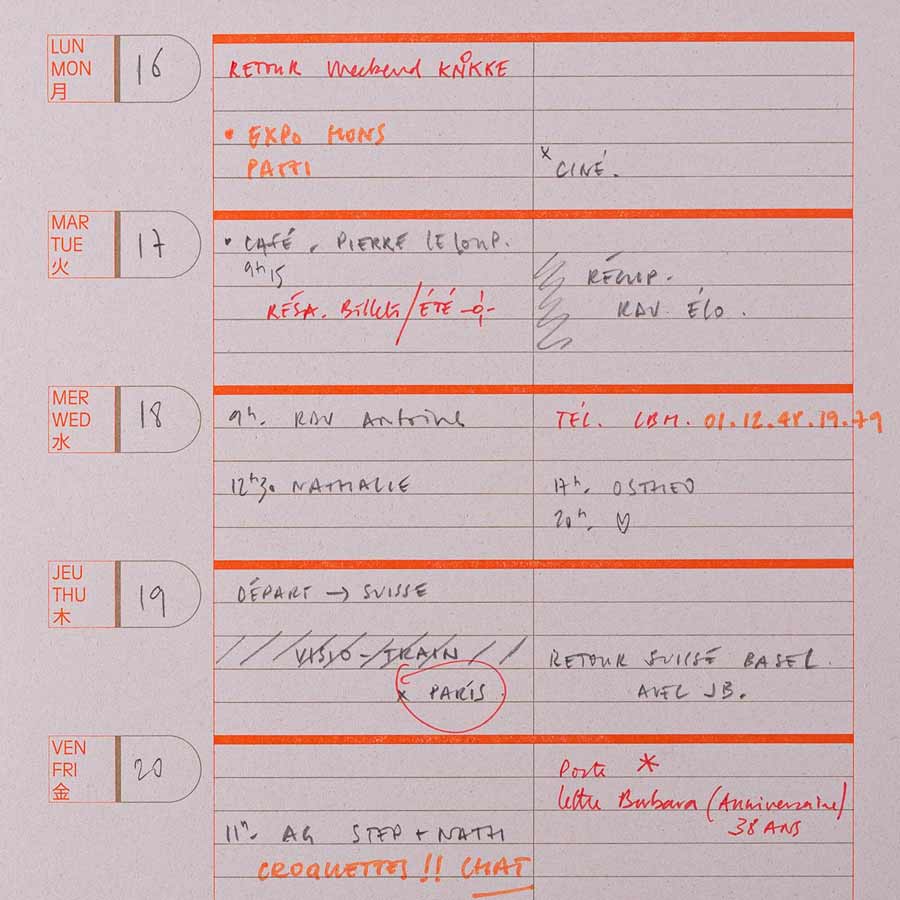 LUN
MON
月
16
RETOUR Weekend KNOKKE
• EXPO MONS
PATTI
x CINÉ.
MAR
TUE
火
17
• CAFÉ. PIERRE LELOUP.
9h15
RÉSA. Billets/ÉTÉ
RÉCUP.
RAV ÉLO.
MER
WED
水
18
9h. RAV Antoine
12h30 NATHALIE
TÉL. LBM. 01.12.48.19.79
17h. OSTHEO
20h. ♡
JEU
THU
木
19
DÉPART → SUISSE
VISIO-TRAIN
x PARIS.
RETOUR SUISSE BASEL.
AVEC JB.
VEN
FRI
金
20
11h. AG STEP + NATH
CROQUETTES !! CHAT
Poste *
lettre Barbara (Anniversaire)
38 ANS